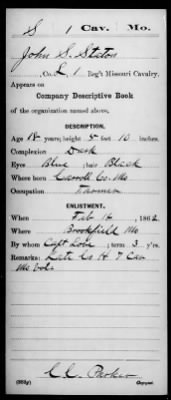 S | 1 | Cav. | Mo.
John S. Staton
, Co. L, 1 Reg't Missouri Cavalry.
Appears on
Company Descriptive Book
of the organization named above.
DESCRIPTION.
Age 18 years; height 5 feet 10 inches.
Complexion Dark
Eyes Blue ; hair Black
Where born Carroll Co. Mo
Occupation Farmer
ENLISTMENT.
When Feb 14 , 1862.
Where Brookfield Mo
By whom Capt Love ; term 3 y'rs.
Remarks: Late Co H 7 Cav
Mo Vols
C.C. Parker
(383g) Copyist.